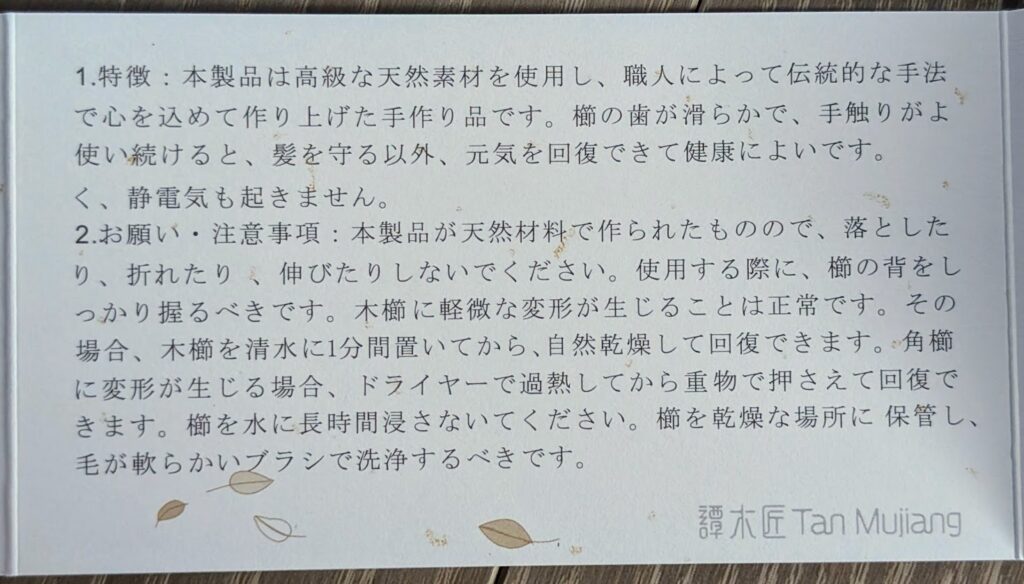 1.特徴：本製品は高級な天然素材を使用し、職人によって伝統的な手法
で心を込めて作り上げた手作り品です。櫛の歯が滑らかで、手触りがよ
使い続けると、髪を守る以外、元気を回復できて健康によいです。
く、静電気も起きません。
2.お願い・注意事項：本製品が天然材料で作られたものので、落とした
り、折れたり 、伸びたりしないでください。使用する際に、櫛の背をし
っかり握るべきです。木櫛に軽微な変形が生じることは正常です。その
場合、木櫛を清水に1分間置いてから、自然乾燥して回復できます。角櫛
に変形が生じる場合、ドライヤーで過熱してから重物で押さえて回復で
きます。櫛を水に長時間浸さないてください。櫛を乾燥な場所に 保管し、
毛が軟らかいブラシで洗浄するべきです。
譚木匠 Tan Mujiang